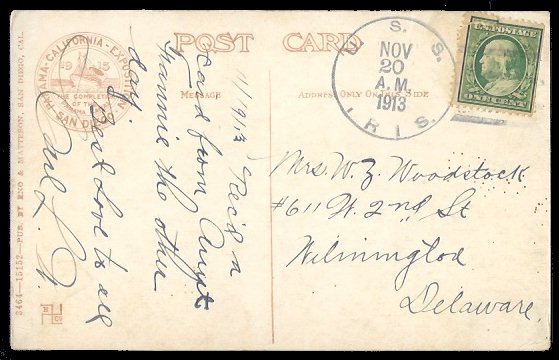 POST CARD
MESSAGE
ADDRESS ONLY ON THIS SIDE
PANAMA-CALIFORNIA-EXPOSITION
1915
THE COMPLETION
OF THE
PANAMA
SAN DIEGO
3464-15152-PUB. BY ENO & MATTESON, SAN DIEGO, CAL.
11/19/13 Rec'd a
card from Aunt
Fannie the other
day.
Best Love to all
U. S. S.
NOV
20
A.M.
1913
IRIS.
U.S. POSTAGE
ONE CENT
Mrs. W. Z. Woodstock
#611 W. 2nd St
Wilmington
Delaware.